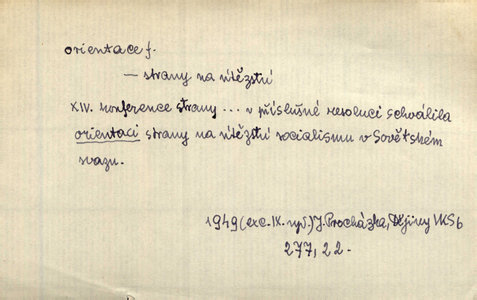 orientace f.
— strany na vítězství
XIV. konference strany ... v příslušné resoluci schválila
orientaci strany na vítězství socialismu v Sovětském
svazu.
1949 (exc. IX. vyd.) J. Procházka, Dějiny VKSb
277, 22.